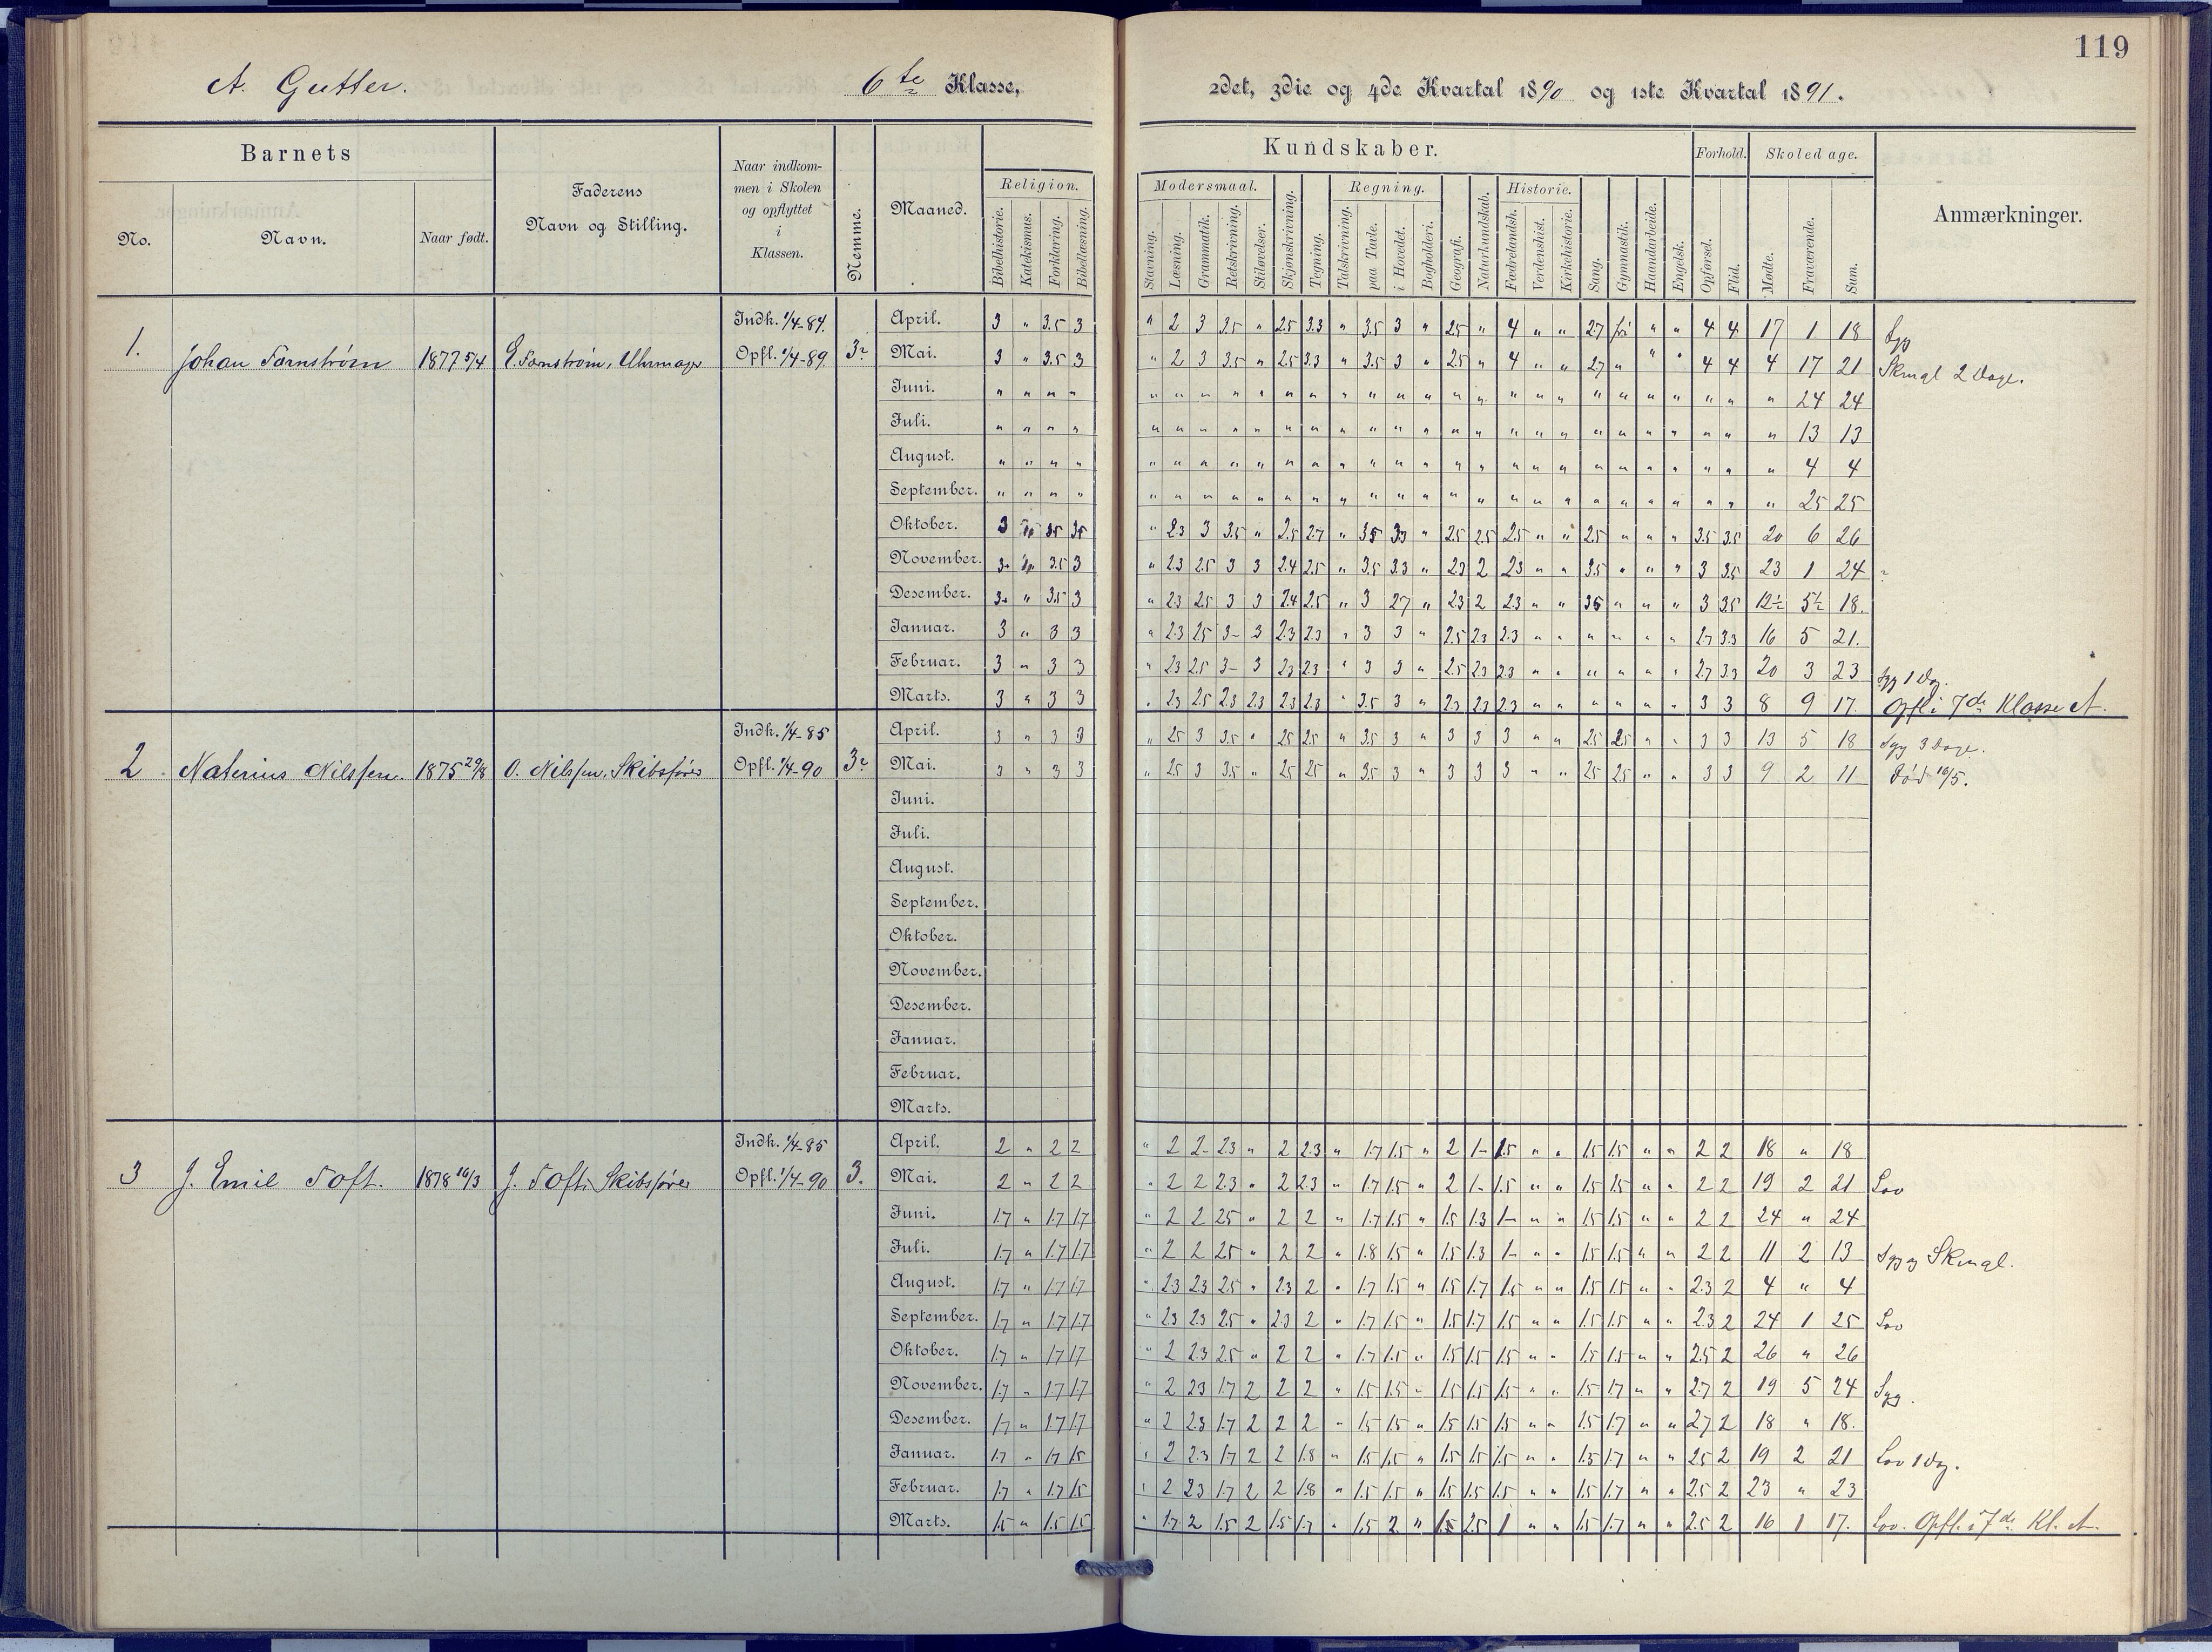 119
A. Gutter. 6te Klasse, 2det, 3die og 4de Kvartal 1890 og 1ste Kvartal 1891.
Barnets
No. Navn. Naar født.
Faderens
Navn og Stilling.
Naar indkom-
men i Skolen
og opflyttet
i
Klassen.
Nemme.
Maaned.
Kundskaber.
Religion.
Bibelhistorie. Katekismus. Forklaring. Bibellæsning.
Modersmaal.
Stavning. Læsning. Grammatik. Retskrivning. Stiløvelser. Skjønskrivning. Tegning.
Regning.
Talskrivning. paa Tavle. i Hovedet. Bogholderi. Geografi. Naturkundskab.
Historie.
Fædrelandsh. Verdenshist. Kirkehistorie. Sang. Gymnastik. Haandarbeide. Engelsk.
Forhold.
Opførsel. Flid.
Skoledage.
Mødte. Fraværende. Sum.
Anmærkninger.
Indk. 1/4-84. April. 3 " 3.5 3 " 2 3 3.5 " 2.5 3.3 " 3.5 3 " 2.5 " 4 " " 2.7 fri " " 4 4 17 1 18 Syg
1. Johan Fornstrøm 1877 5/4 E. Fornstrøm, Uhrmager Opfl. 1/4-89. 3 Mai. 3 " 3.5 3 " 2 3 3.5 " 2.5 3.3 " 3.5 3 " 2.5 " 4 " " 2.7 " " " 4 4 4 17 21 Skmgl 2 Dage.
Juni. " " " " " " " 24 24
Juli. " " " " " " " 13 13
August. " " " " " " " 4 4
September. " " " " " " " 25 25
Oktober. 3 3.5 3.5 " 2.3 3 3.5 " 2.5 2.7 " 3.5 3.3 " 2.5 2.5 2.5 " " 2.5 " " " 3.5 3.5 20 6 26
November. 3 3.5 3 " 2.3 2.5 3 3 2.4 2.5 " 3.5 3.3 " 2.3 2 2.3 " " 3.5 " " " 3 3.5 23 1 24
Desember. 3 " 3.5 3 " 2.3 2.5 3 3 2.4 2.5 " 3 2.7 " 2.3 2 2.3 " " 3.5 " " " 3 3.5 12½ 5½ 18.
Januar. 3 " 3 3 " 2.3 2.5 3- 3 2.3 2.3 " 3 3 " 2.5 2.3 2.3 " " " " " " 2.7 3.3 16 5 21.
Februar. 3 " 3 3 " 2.3 2.5 3- 3 2.3 2.3 " 3 3 " 2.5 2.3 2.3 " " " " " " 2.7 3.3 20 3 23 Syg 1 Dag.
Marts. 3 " 3 3 " 2.3 2.5 2.3 2.3 2.3 2.3 " 3.5 3 " 2.3 2.3 2.3 " " " " " " 3 3 8 9 17. Opfl. i 7de Klasse A.
Indk. 1/4-85 April. 3 " 3 3 " 2.5 3 3.5 " 2.5 2.5 " 3.5 3 " 3 3 3 " " 2.5 2.5 " " 3 3 13 5 18 Syg 3 Dage.
2. Naterius Nilssen. 1875 29/8 O. Nilssen, Skibsfører Opfl. 1/4-90 3 Mai. 3 " 3 3 " 2.5 3 3.5 " 2.5 2.5 " 3.5 3 " 3 3 3 " " 2.5 2.5 " " 3 3 9 2 11 Død 16/5.
Juni.
Juli.
August.
September.
Oktober.
November.
Desember.
Januar.
Februar.
Marts.
Indk. 1/4-85 April. 2 " 2 2 " 2 2- 2.3 " 2 2.3 " 1.7 1.5 " 2 1- 1.5 " " 1.5 1.5 " " 2 2 18 " 18
3 J. Emil Toft. 1878 16/3 J. Toft, Skibsfører Opfl. 1/4-90 3. Mai. 2 " 2 2 " 2 2 2.3 " 2 2.3 " 1.7 1.5 " 2 1- 1.5 " " 1.5 1.5 " " 2 2 19 2 21 Lov
Juni. 1.7 " 1.7 1.7 " 2 2 2.5 " 2 2 " 1.7 1.5 " 1.5 1.3 1- " " 1.5 1.5 " " 2 2 24 " 24
Juli. 1.7 " 1.7 1.7 " 2 2 2.5 " 2 2 " 1.8 1.5 " 1.5 1.3 1- " " 1.5 1.5 " " 2 2 11 2 13 Syg og Skmgl.
August. 1.7 " 1.7 1.7 " 2.3 2.3 2.5 " 2.3 2 " 1.7 1.5 " 1.5 1.7 1.5 " " 1.5 1.5 " " 2.3 2 4 " 4
September. 1.7 " 1.7 1.7 " 2.3 2.3 2.5 " 2.3 2 " 1.7 1.5 " 1.5 1.7 1.5 " " 1.5 1.5 " " 2.3 2 24 1 25 Lov
Oktober. 1.7 " 1.7 1.7 " 2 2.3 2.5 " 2 2 " 1.7 1.5 " 1.5 1.5 1.5 " " 1.5 1.5 " " 2.5 2 26 " 26
November. 1.7 " 1.7 1.7 " 2 2.3 1.7 2 2 2 " 1.5 1.5 " 1.5 1.5 1.5 " " 1.5 1.7 " " 2.7 2 19 5 24 Syg.
Desember. 1.7 " 1.7 1.7 " 2 2.3 1.7 2 2 2 " 1.5 1.5 " 1.5 1.5 1.5 " " 1.5 1.7 " " 2.7 2 18 " 18.
Januar. 1.7 " 1.7 1.5 " 2 2.3 1.7 2 2 1.8 " 1.5 1.5 " 1.5 1.5 1.5 " " 1.5 1.7 " " 2.5 2 19 2 21 Lov 1 Dag.
Februar. 1.7 " 1.7 1.5 " 2 2.3 1.7 2 2 1.8 " 1.5 1.5 " 1.5 1.5 1.5 " " 1.5 1.7 " " 2.5 2 23 " 23
Marts. 1.5 " 1.5 1.5 " 1.7 2 1.5 2 1.5 1.7 " 1.5 2 " 1.5 2.5 1 " " 1.5 1.7 " " 2.5 2 16 1 17. Lov. Opfl. i 7de Kl. A.